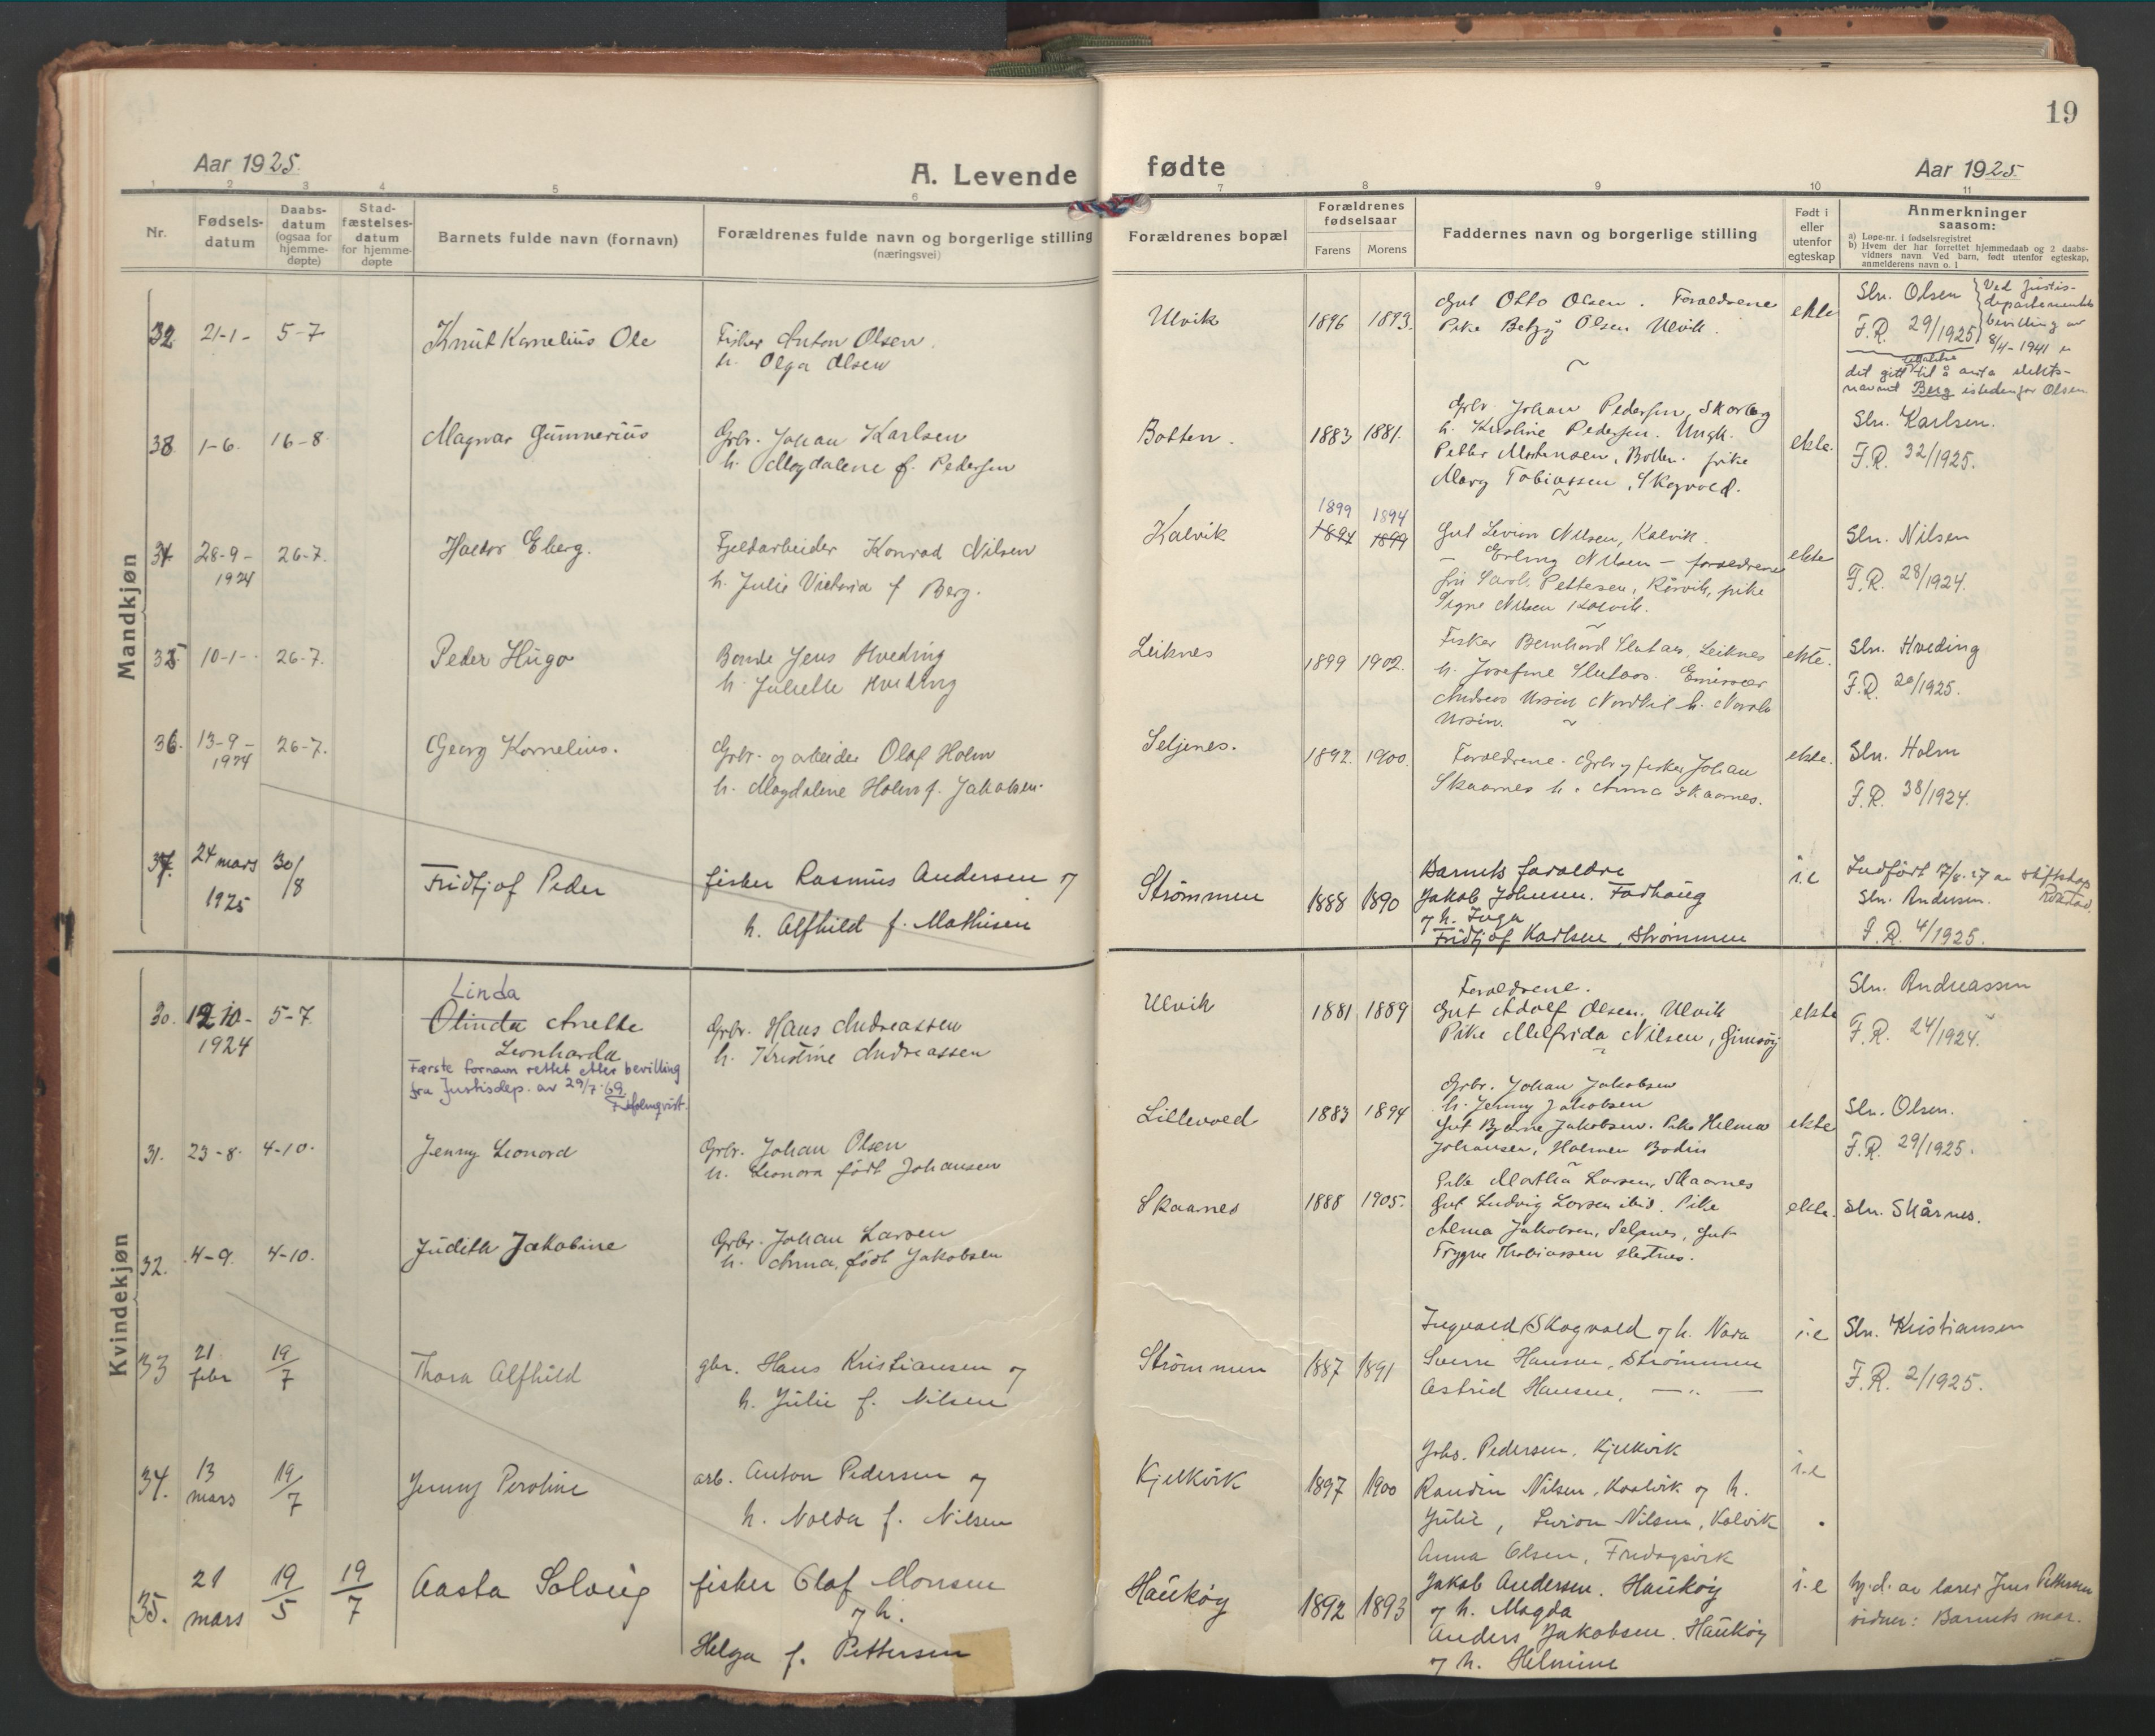 19
Aar 1925.
A. Levende fødte
Aar 1925
1 2 3 4 5 6 7 8 9 10 11
Nr.
Fødsels-
datum
Daabs-
datum
(ogsaa for
hjemme-
døpte)
Stad-
fæstelses-
datum
for hjemme-
døpte
Barnets fulde navn (fornavn)
Forældrenes fulde navn og borgerlige stilling
(næringsvei)
Forældrenes bopæl
Forældrenes
fødselsaar
Farens Morens
Faddernes navn og borgerlige stilling
Født i
eller
utenfor
egteskap
Anmerkninger
saasom:
a) Løpe-nr. i fødselsregistret
b) Hvem der har forrettet hjemmedaab og 2 daabs-
vidners navn. Ved barn, født utenfor egteskap,
anmelderens navn o. l
Mandkjøn
32. 21-1- 5-7
Knut Kornelius Ole
Fisker Anton Olsen.
h. Olga Olsen
Ulvik
1896 1893.
Gut Otto Olsen. Foraeldrene
Pike Betzy Olsen Ulvik.
ekte
Sln. Olsen
F.R. 29/1925
Ved Justis-
departementets
bevilling av
8/4-1941 er
det gitt tillatelse til å anta slekts-
navnet Berg istedenfor Olsen
33. 1-6. 16-8.
Magnar Gunnerius
Grbr. Johan Karlsen
h. Magdalene f. Pedersen
Botten.
1883 1881.
Grbr. Johan Pedersen, Skarberg
h. Kristine Pedersen. Ungk.
Petter Mortensen, Botten. pike
Mary Tobiassen, Skogvold.
ekte.
Sln. Karlsen.
F.R. 32/1925.
34. 28-9- 26-7.
1924
Haldor Eberg.
Fjeldarbeider Konrad Nilsen
h. Julie Victoria f Berg.
Kalvik
1899 1894
1894 1899
Gut Levion Nilsen, Kalvik.
— Erling Nilsen — foraeldrene
Pettersen, Rørvik, pike
Signe Nilsen Kalvik.
ekte
Sln. Nilsen
F.R. 28/1924.
35 10-1-. 26-7.
Peder Hugo
Bonde Jens Hveding
h. Juliette Hveding
Leiknes
1899 1902.
Fisker Bernhard Leiknes
h. Josefine Emissær
Andreas Ursin Nordkil h.
Ursin.
ekte.
Sln. Hveding
F.R. 20/1925.
36. 13-9- 26-7.
1924
Georg Kornelius.
Grbr. og arbeider Olaf Holm
h. Magdalene Holm f. Jakobsen.
Seljenes.
1892. 1900.
Foraeldrene. Grbr og fisker Johan
Skaarnes h. Anna Skaarnes.
ekte.
Sln. Holm
F.R. 38/1924.
37. 24 mars 30/8
1925
Fridtjof Peder
fisker Rasmus Andersen og
h. Alfhild f. Mathisen
Strømmen
1888 1890
Barnets foraeldre
Jakob Johnsen. Farhaug
og h. Inga
Fridtjof Karlsen, Strømmen
i.e
Indført 7/8.27 av
Sln. Andersen.
F.R. 4/1925.
Kvindekjøn
30. 12-10- 5-7.
1924
Linda
Olinda Anette
Leonharda
Første fornavn rettet etter bevilling
fra Justisdep. av 29/7-69.
Grbr. Hans Andreassen
h. Kristine Andreassen
Ulvik
1881 1889
Foraeldrene.
Gut Adolf Olsen. Ulvik
Pike Melfrida Nilsen, Gimsøy
ekte
Sln. Andreassen
F.R. 24/1924.
31. 23-8. 4-10.
Jenny Leonord
Grbr. Johan Olsen
h. Leonora født Johansen
Lillevold
1883 1894
Grbr. Johan Jakobsen
h. Jenny Jakobsen
Gut Bjarne Jakobsen. Pike Helma
Johansen, Holmen Bodin
ekte
Sln. Olsen.
F.R. 29/1925.
32. 4-9. 4-10.
Judith Jakobine
Grbr. Johan Larsen
h. Anna, født Jakobsen
Skaarnes
1888 1905.
Pike Martha Larsen, Skaarnes
Gut Ludvig Larsen ibid. Pike
Alma Jakobsen, Seljnes, Gut
Trygve Thobiassen
ekte.
Sln. Skårnes.
33 21 febr 19/7
Thora Alfhild
gbr. Hans Kristiansen og
h. Julie f. Nilsen
Strømmen
1887 1891
Ingvald Skogvold og h. Nora
Sverre Hansen, Strømmen
Astrid Hansen, — " —
i.e
Sln. Kristiansen
F.R. 2/1925.
34. 13 mars 19/7
Jenny Peroline
arb. Anton Pedersen og
h. Nolda f. Nilsen
Kjelkvik
1897 1900
Johs. Pedersen, Kjelkvik
Randin Nilsen, Kaalvik og h.
Julie, Levion Nilsen, Kalvik
Anna Olsen, Fredagsvik
i.e
35. 21 mars 19/5 19/7
Aasta Solveig
fisker Olaf Monsen
og h.
Helga f. Pettersen
Haukøy
1892 1893
Jakob Andersen. Haukøy
og h. Magda
Anders Jakobsen. Haukøy
og h. Helmine
i.e
hj.d. av lærer Jens Pettersen
vidner: Barnets mor.